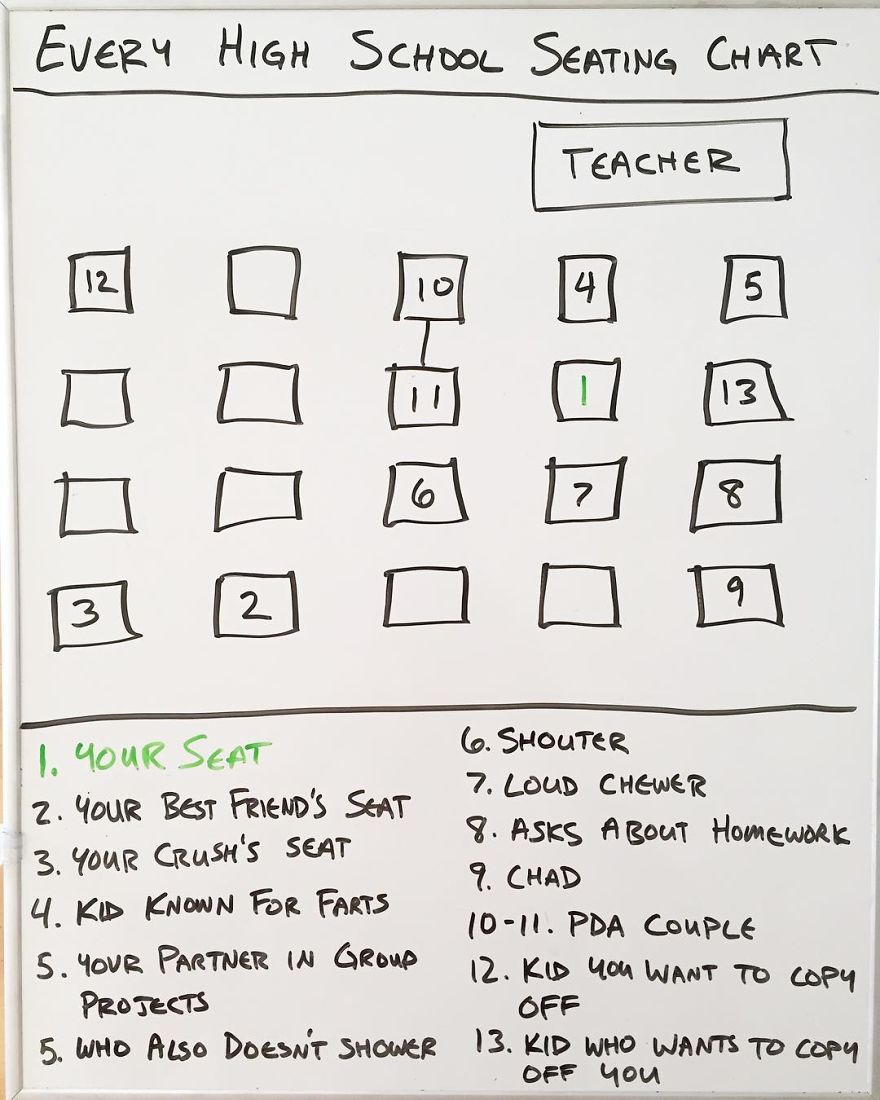 EVERY HIGH SCHOOL SEATING CHART
TEACHER
12 10 4 5
11 1 13
6 7 8
3 2 9
1. YOUR SEAT
2. YOUR BEST FRIEND'S SEAT
3. YOUR CRUSH'S SEAT
4. KID KNOWN FOR FARTS
5. YOUR PARTNER IN GROUP
PROJECTS
5. WHO ALSO DOESN'T SHOWER
6. SHOUTER
7. LOUD CHEWER
8. ASKS ABOUT HOMEWORK
9. CHAD
10-11. PDA COUPLE
12. KID YOU WANT TO COPY
OFF
13. KID WHO WANTS TO COPY
OFF YOU